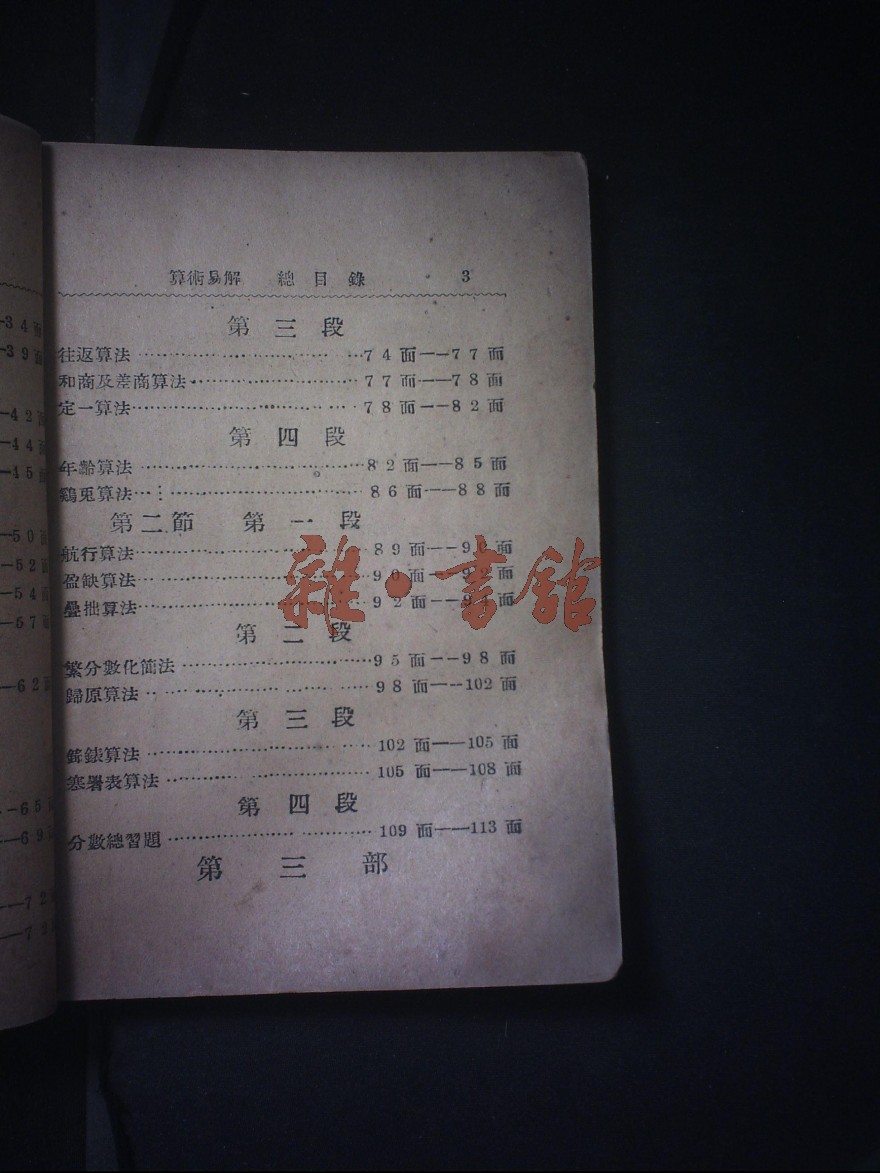 算術易解 總目錄 3
第三段
往返算法⋯⋯74面——77面
和商及差商算法⋯⋯77面——78面
定一算法⋯⋯78面——82面
第四段
年齡算法⋯⋯82面——85面
鷄兎算法⋯⋯86面——88面
第二節 第一段
航行算法⋯⋯89面——90面
盈缺算法⋯⋯90面——面
疊拙算法⋯⋯92面——面
第二段
繁分數化簡法⋯⋯95面——98面
歸原算法⋯⋯98面——102面
第三段
鐘錶算法⋯⋯102面——105面
寒署表算法⋯⋯105面——108面
第四段
分數總習題⋯⋯109面——113面
第三部
雜·書館
—34面
—39面
—42面
—44面
—45面
—50面
—52面
—54面
—67
—62面
—65面
—69面
—72
—72